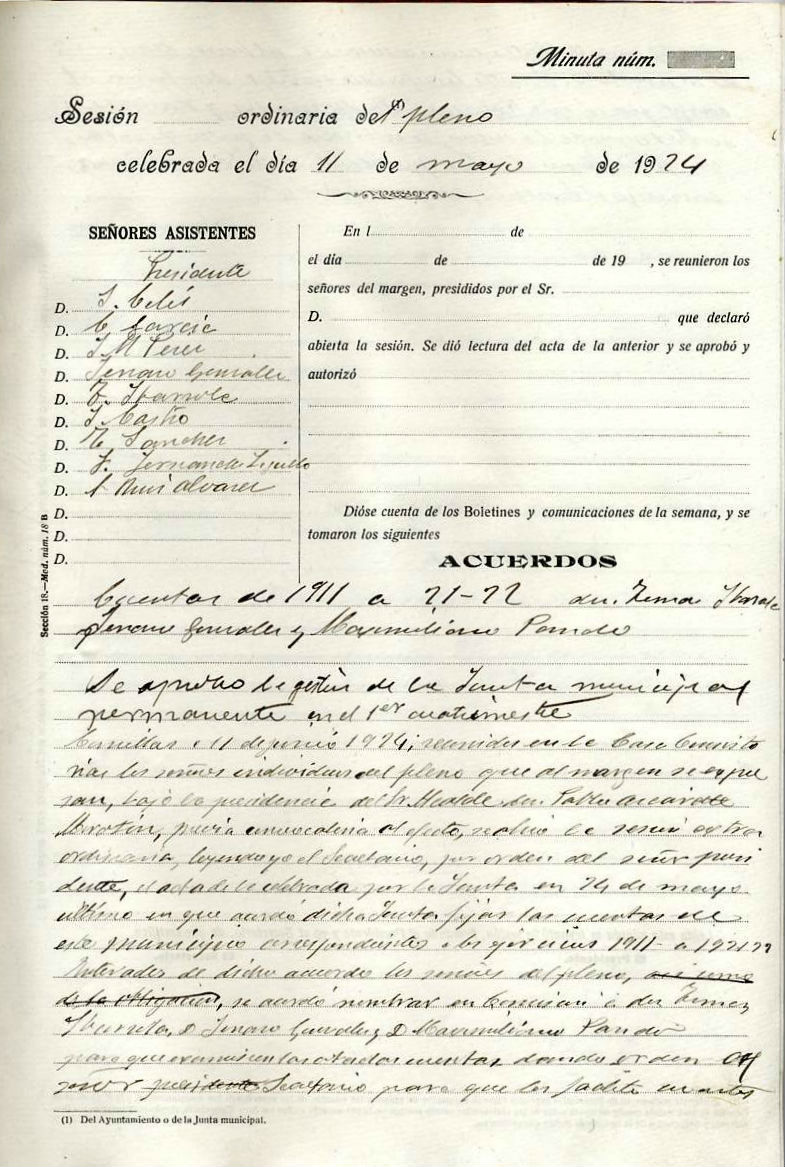 Minuta núm.
Sesión ordinaria del (1) pleno
celebrada el día 11 de mayo de 1924
SEÑORES ASISTENTES
Presidente
D. J. Celis
D. C. Garcia
D. J M Perez
D. Jenaro Gonzalez
D. Z. Ibarrola
D. J. Castro
D. Sanchez
D. F. Fernandez
D. Ruiz Alvarez
D.
D.
D.
En l de
el día de de 19 , se reunieron los
señores del margen, presididos por el Sr.
D. que declaró
abierta la sesión. Se dió lectura del acta de la anterior y se aprobó y
autorizó
Dióse cuenta de los Boletines y comunicaciones de la semana, y se
tomaron los siguientes
ACUERDOS
Cuentas de 1911 a 21-22
Jenaro Gonzalez y Maximiliano Pando
Se aprobo la gestión de la Junta municipal
permanente en el 1er cuatrimestre
Comillas a 11 de junio 1924; reunidos en la Casa Consisto
rial los señores individuos del pleno que al margen se expre
san, bajo la presidencia del Sr. Alcalde don Pablo
previa convocatoria al efecto, se abrió la sesión extra
ordinaria, leyendo yo el Secretario, por orden del señor presi
dente, el acta de la celebrada por la Junta en 24 de mayo
ultimo en que acordó dicha Junta fijar las cuentas de
este municipio correspondientes a los ejercicios 1911- a 1921 22
Enterados de dicho acuerdo los señores del pleno, asi como
de la obligacion, se acordó nombrar en Comision a don
D. Jenaro Gonzalez y D. Maximiliano Pando
para que examinen las citadas cuentas dando orden al
señor presidente Secretario para que les facilite cuantos
(1) Del Ayuntamiento o de la Junta municipal.
Sección 18.—Mod. núm. 18 B